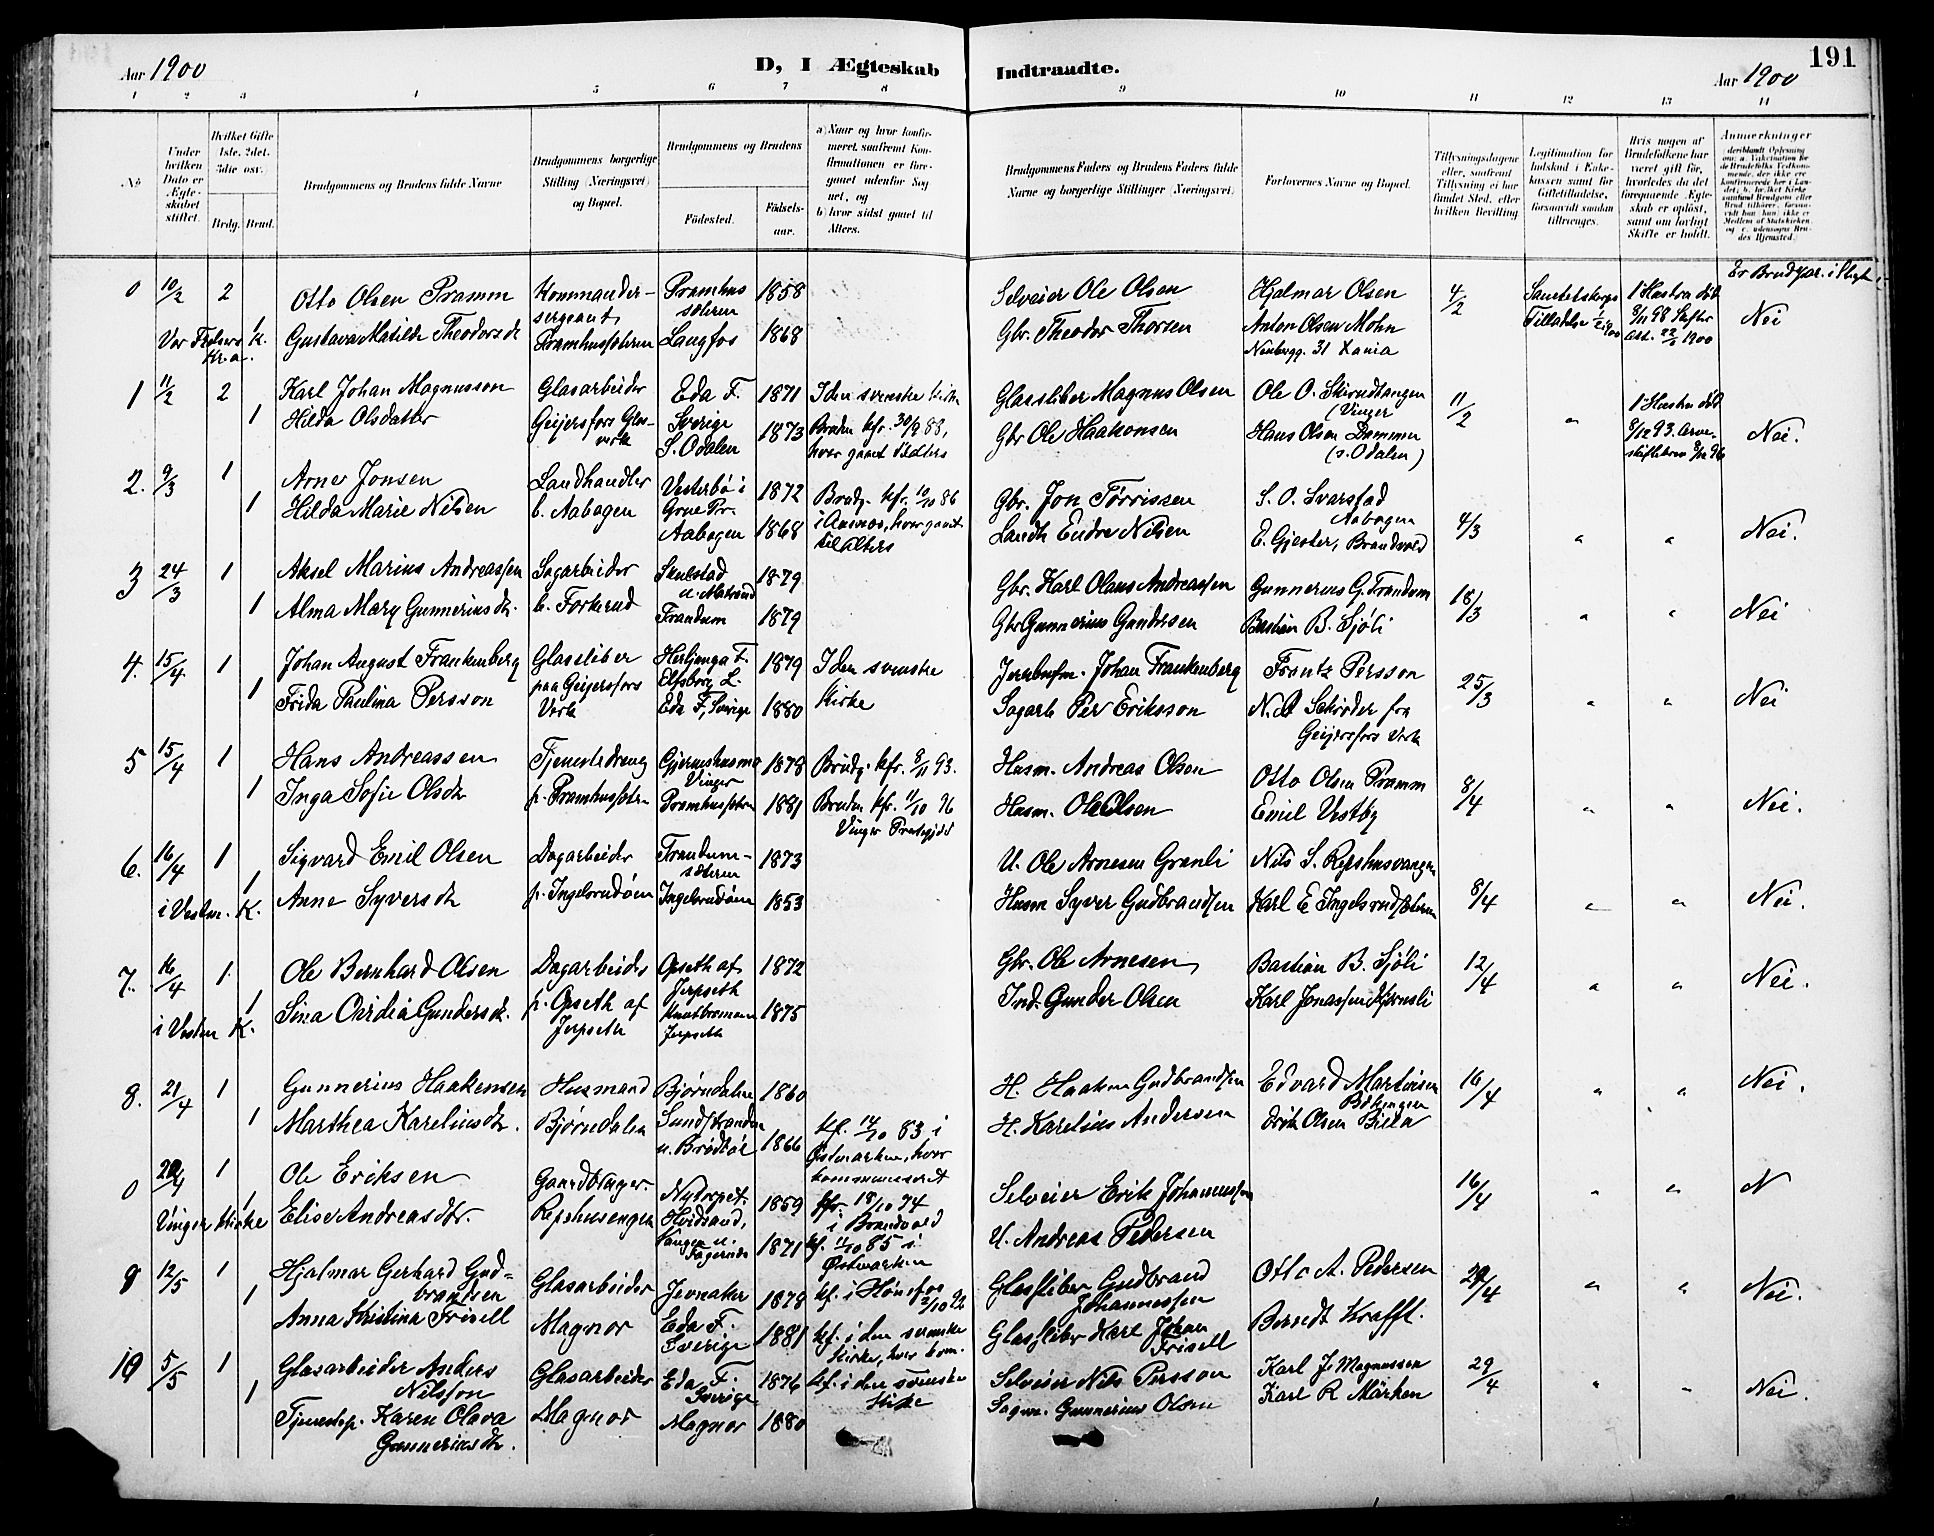 191
Aar 1900
D, I Ægteskab
Indtraadte.
Aar 1900
1 2 3 4 5 6 7 8 9 10 11 12 13 14
No
Under hvilken Dato er Ægteskabet stiftet.
Hvilket Gifte 1ste, 2det, 3die osv.
Brdg. Brud.
Brudgommens og Brudens fulde Navne
Brudgommens borgerlige Stilling (Næringsvei) og Bopæl.
Brudgommens og Brudens
Fødested.
Fødselsaar.
a) Naar og hvor konfirmeret, saafremt Konfirmationen er foregaaet udenfor Sognet, og
b) hvor sidst gaaet til Alters.
Brudgommens Faders og Brudens Faders fulde Navne og borgerlige Stillinger (Næringsvei)
Forlovernes Navne og Bopæl.
Tillysningsdagene eller, saafremt Tillysning ei har fundet Sted, efter hvilken Bevilling
Legitimation for Indskud i Enkekassen samt for Giftetilladelse, forsaavidt saadan tiltrænges.
Hvis nogen af Brudefolkene har været gift før, hvorledes da det foregaaende Ægteskab er opløst, samt om lovligt Skifte er holdt.
Anmerkninger
Er Brudepar. i Slegt
0 10/2 2 Otto Olsen Pramm Kommandersergeant, Pramhussæteren Pramhussæteren 1858 Selveier Ole Olsen Hjalmar Olsen 4/2 Sanitetskorps Tilladelse 1 Hustru død 8/11 98 Nei
Vor Frelsers K. Kr.a. 1 Gustava Matilde Theodorsdt Langfos 1868 Gbr. Theodor Thorsen Anton Olsen Mohn
1 11/2 2 Karl Johan Magnusson Glasarbeider Eda F. Sverige 1871 I den svenske Kirke Glassliber Magnus Olsen Ole O. Skinrudtangen (Vinger 11/2 " 1 Hustru død 8/12 93. Nei.
1 Hilda Olsdatter Geijersfors Glasverk S. Odalen 1873 Bruden kfr. 30/9 88, hvor gaaet t. Alters Gbr Ole Haakonsen Hans Olsen Dammen (S. Odalen)
2. 9/3 1 Arne Jonsen Landhandler Vesterbø i Grue Pr. 1872 Brudg. kfr. 10/10 86 i Aasnes, hvor gaaet til Alters Gbr. Jon Tørrissen S. O. Svarstad Aabogen 4/3 " " Nei.
1 Hilda Marie Nilsen b. Aabogen Aabogen 1868 Landh Endre Nilsen E. Gjester, Brandvold
3 24/3 1 Aksel Marius Andreassen Sagarbeider Skulstad u. Matrand 1879 Gbr. Karl Olaus Andreassen Gunnerius G. Trandum 18/3 " " Nei
1 Alma Mary Gunneriusdt. b. Forkerud Trandum 1879 Gbr Gunnerius Gundersen Bastian B. Sjøli
4. 15/4 1 Johan August Frankenberg Glassliber Herljunga F. Elfsborg L. 1879 I den svenske Kirke Johan Frankenberg Frantz Persson 25/3 " " Nei
1 Frida Paulina Persson paa Geijersfors Verk Eda F, Sverige 1880 Sagarb Per Eriksson Schrøder fra Geijersfors Verk
5 15/4 1 Hans Andreassen Tjenestedreng Vinger 1878 Brudg. kfr. 8/11 93. Husm. Andreas Olsen Otto Olsen Pramm 8/4 " " Nei.
1 Inga Sofie Olsdt p. Pramhussætern Pramhussætern 1881 Bruden kfr. 11/10 96 Vinger Prestegjeld Husm. Ole Olsen Emil Vestby
6. 16/4 1 Sigvard Emil Olsen Dagarbeider Trandumsæteren 1873 U. Ole Arnesen Granli Nils S. Repshusvangen 8/4 " " Nei.
i Vestm. K. 1 Anne Syversdt p. Ingelsrudøien Ingelsrudøien 1853 Husm Syver Gudbrandsen Karl E Ingelsrudsætern
7. 16/4 1 Ole Bernhard Olsen Dagarbeider Opseth af Jerpseth 1872 Gbr. Ole Arnesen Bastian B. Sjøli 12/4 " " Nei.
i Vestm K. 1 Sina Gundersdt. p. Opseth af Jerpseth Jerpseth 1875 Ind. Gunder Olsen Karl Jonassen
8. 21/4 1 Gunnerius Haakensen Husmand Bjørndalen 1860 H. Haaken Gudbrandsen Edvard Martinsen 16/4 " " Nei.
1 Marthea Kareliusdt. Bjørndalen Sundstranden u. Brødbøl 1866 kf. 14/10 83 i Østmarken, hvor kommuniseret H. Karelius Andersen Erik Olsen
0 1 Ole Eriksen Gaardbruger. Nytorpet, 1859 kfr. 18/10 74 i Brandvold Selveier Erik Johannessen 16/4 " " N
Vinger Kirke 1 Elise Andreasdtr. Repshusengen Vangen u. 1871 kf. 11/10 85 i Østmarken U. Andreas Pedersen
9 12/5 1 Hjalmar Gerhard Gudbrandsen Glasarbeider Jevnaker 1878 kf. i Hønefos 2/10 92 Glassliber Gudbrand Johannessen Otto A. Pedersen 29/4 " " Nei.
1 Anna Kristina Frisell Magnor Eda F. Sverige 1881 kf. i den svenske Kirke, hvor kom. Glassliber Karl Johan Frisell Berndt Krafft.
10 5/5 1 Glasarbeider Anders Nilsson Glasarbeider Eda F. Sverige 1876 kf. i den svenske Kirke Selveier Nils Persson Karl J. Magnussen 29/4 " " Nei.
1 Tjenestep. Karen Olava Gunneriusdt. Magnor Magnor 1880 Sagm. Gunnerius Olsen Karl R Mörken